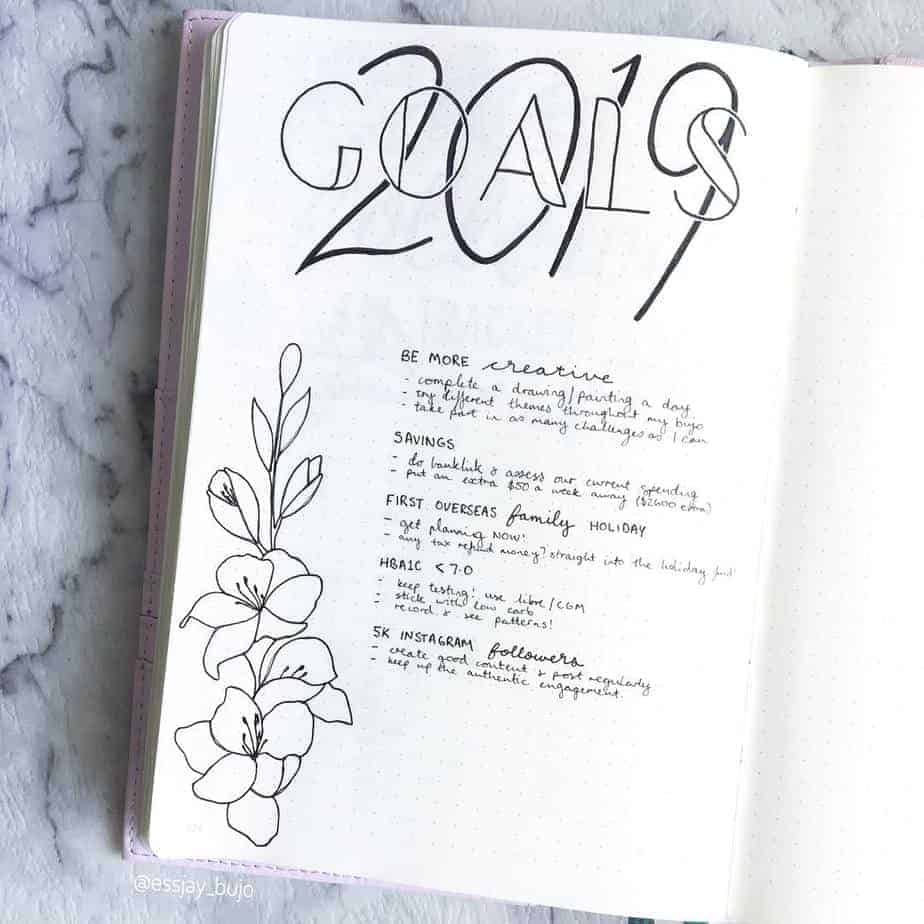 2019
GOALS
BE MORE creative
- complete a drawing/painting a day
- try different themes throughout my bujo
- take part in as many challenges as I can
SAVINGS
- do banklink & assess our current spending
- put an extra $50 a week away ($2600 extra)
FIRST OVERSEAS family HOLIDAY
- get planning NOW!
- any tax refund money? straight into the holiday fund
HBA1C < 7.0
- keep testing! use libre/CGM
- stick with low carb
- record & see patterns!
5K INSTAGRAM followers
- create good content & post regularly
- keep up the authentic engagement.
@essjay_bujo